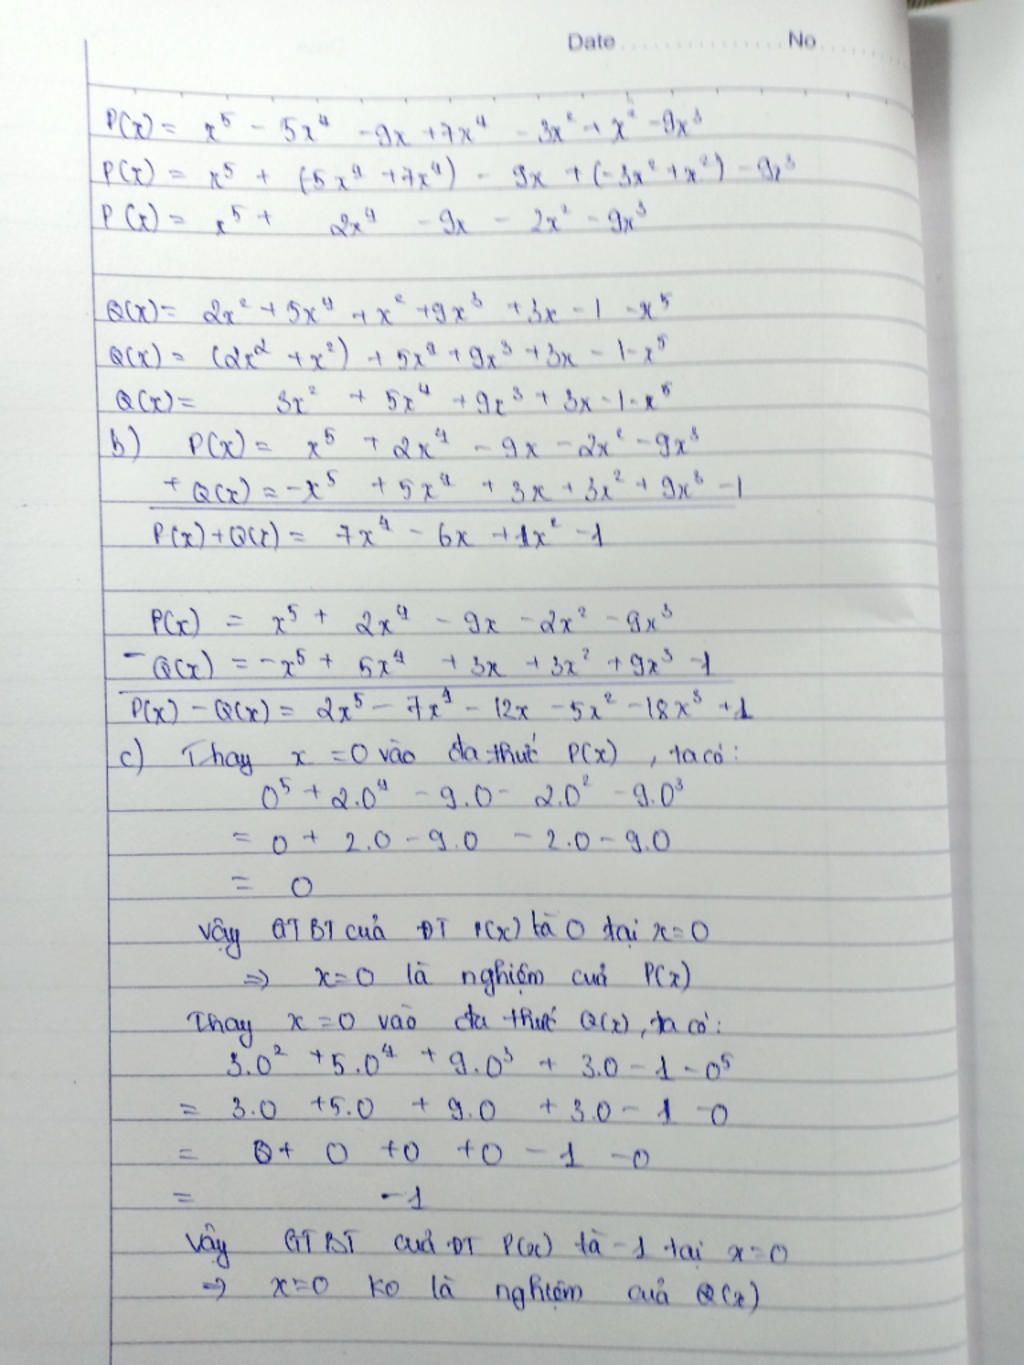 Date No
P(x) = x⁵ - 5x⁴ - 9x + 7x⁴ - 3x² + x² - 9x³
P(x) = x⁵ + (-5x⁴ + 7x⁴) - 9x + (-3x² + x²) - 9x³
P(x) = x⁵ + 2x⁴ - 9x - 2x² - 9x³
Q(x) = 2x² + 5x⁴ + x² + 9x³ + 3x - 1 - x⁵
Q(x) = (2x² + x²) + 5x⁴ + 9x³ + 3x - 1 - x⁵
Q(x) = 3x² + 5x⁴ + 9x³ + 3x - 1 - x⁵
b) P(x) = x⁵ + 2x⁴ - 9x - 2x² - 9x³
+ Q(x) = -x⁵ + 5x⁴ + 3x + 3x² + 9x³ - 1
P(x) + Q(x) = 7x⁴ - 6x + 1x² - 1
P(x) = x⁵ + 2x⁴ - 9x - 2x² - 9x³
- Q(x) = -x⁵ + 5x⁴ + 3x + 3x² + 9x³ - 1
P(x) - Q(x) = 2x⁵ - 7x⁴ - 12x - 5x² - 18x³ + 1
c) Thay x = 0 vào đa thức P(x), ta có:
0⁵ + 2.0⁴ - 9.0 - 2.0² - 9.0³
= 0 + 2.0 - 9.0 - 2.0 - 9.0
= 0
Vậy GTBT của ĐT P(x) là 0 tại x=0
=> x=0 là nghiệm của P(x)
Thay x = 0 vào đa thức Q(x), ta có:
3.0² + 5.0⁴ + 9.0³ + 3.0 - 1 - 0⁵
= 3.0 + 5.0 + 9.0 + 3.0 - 1 - 0
= 0 + 0 + 0 + 0 - 1 - 0
= -1
Vậy GTBT của ĐT P(x) là -1 tại x=0
=> x=0 ko là nghiệm của Q(x)